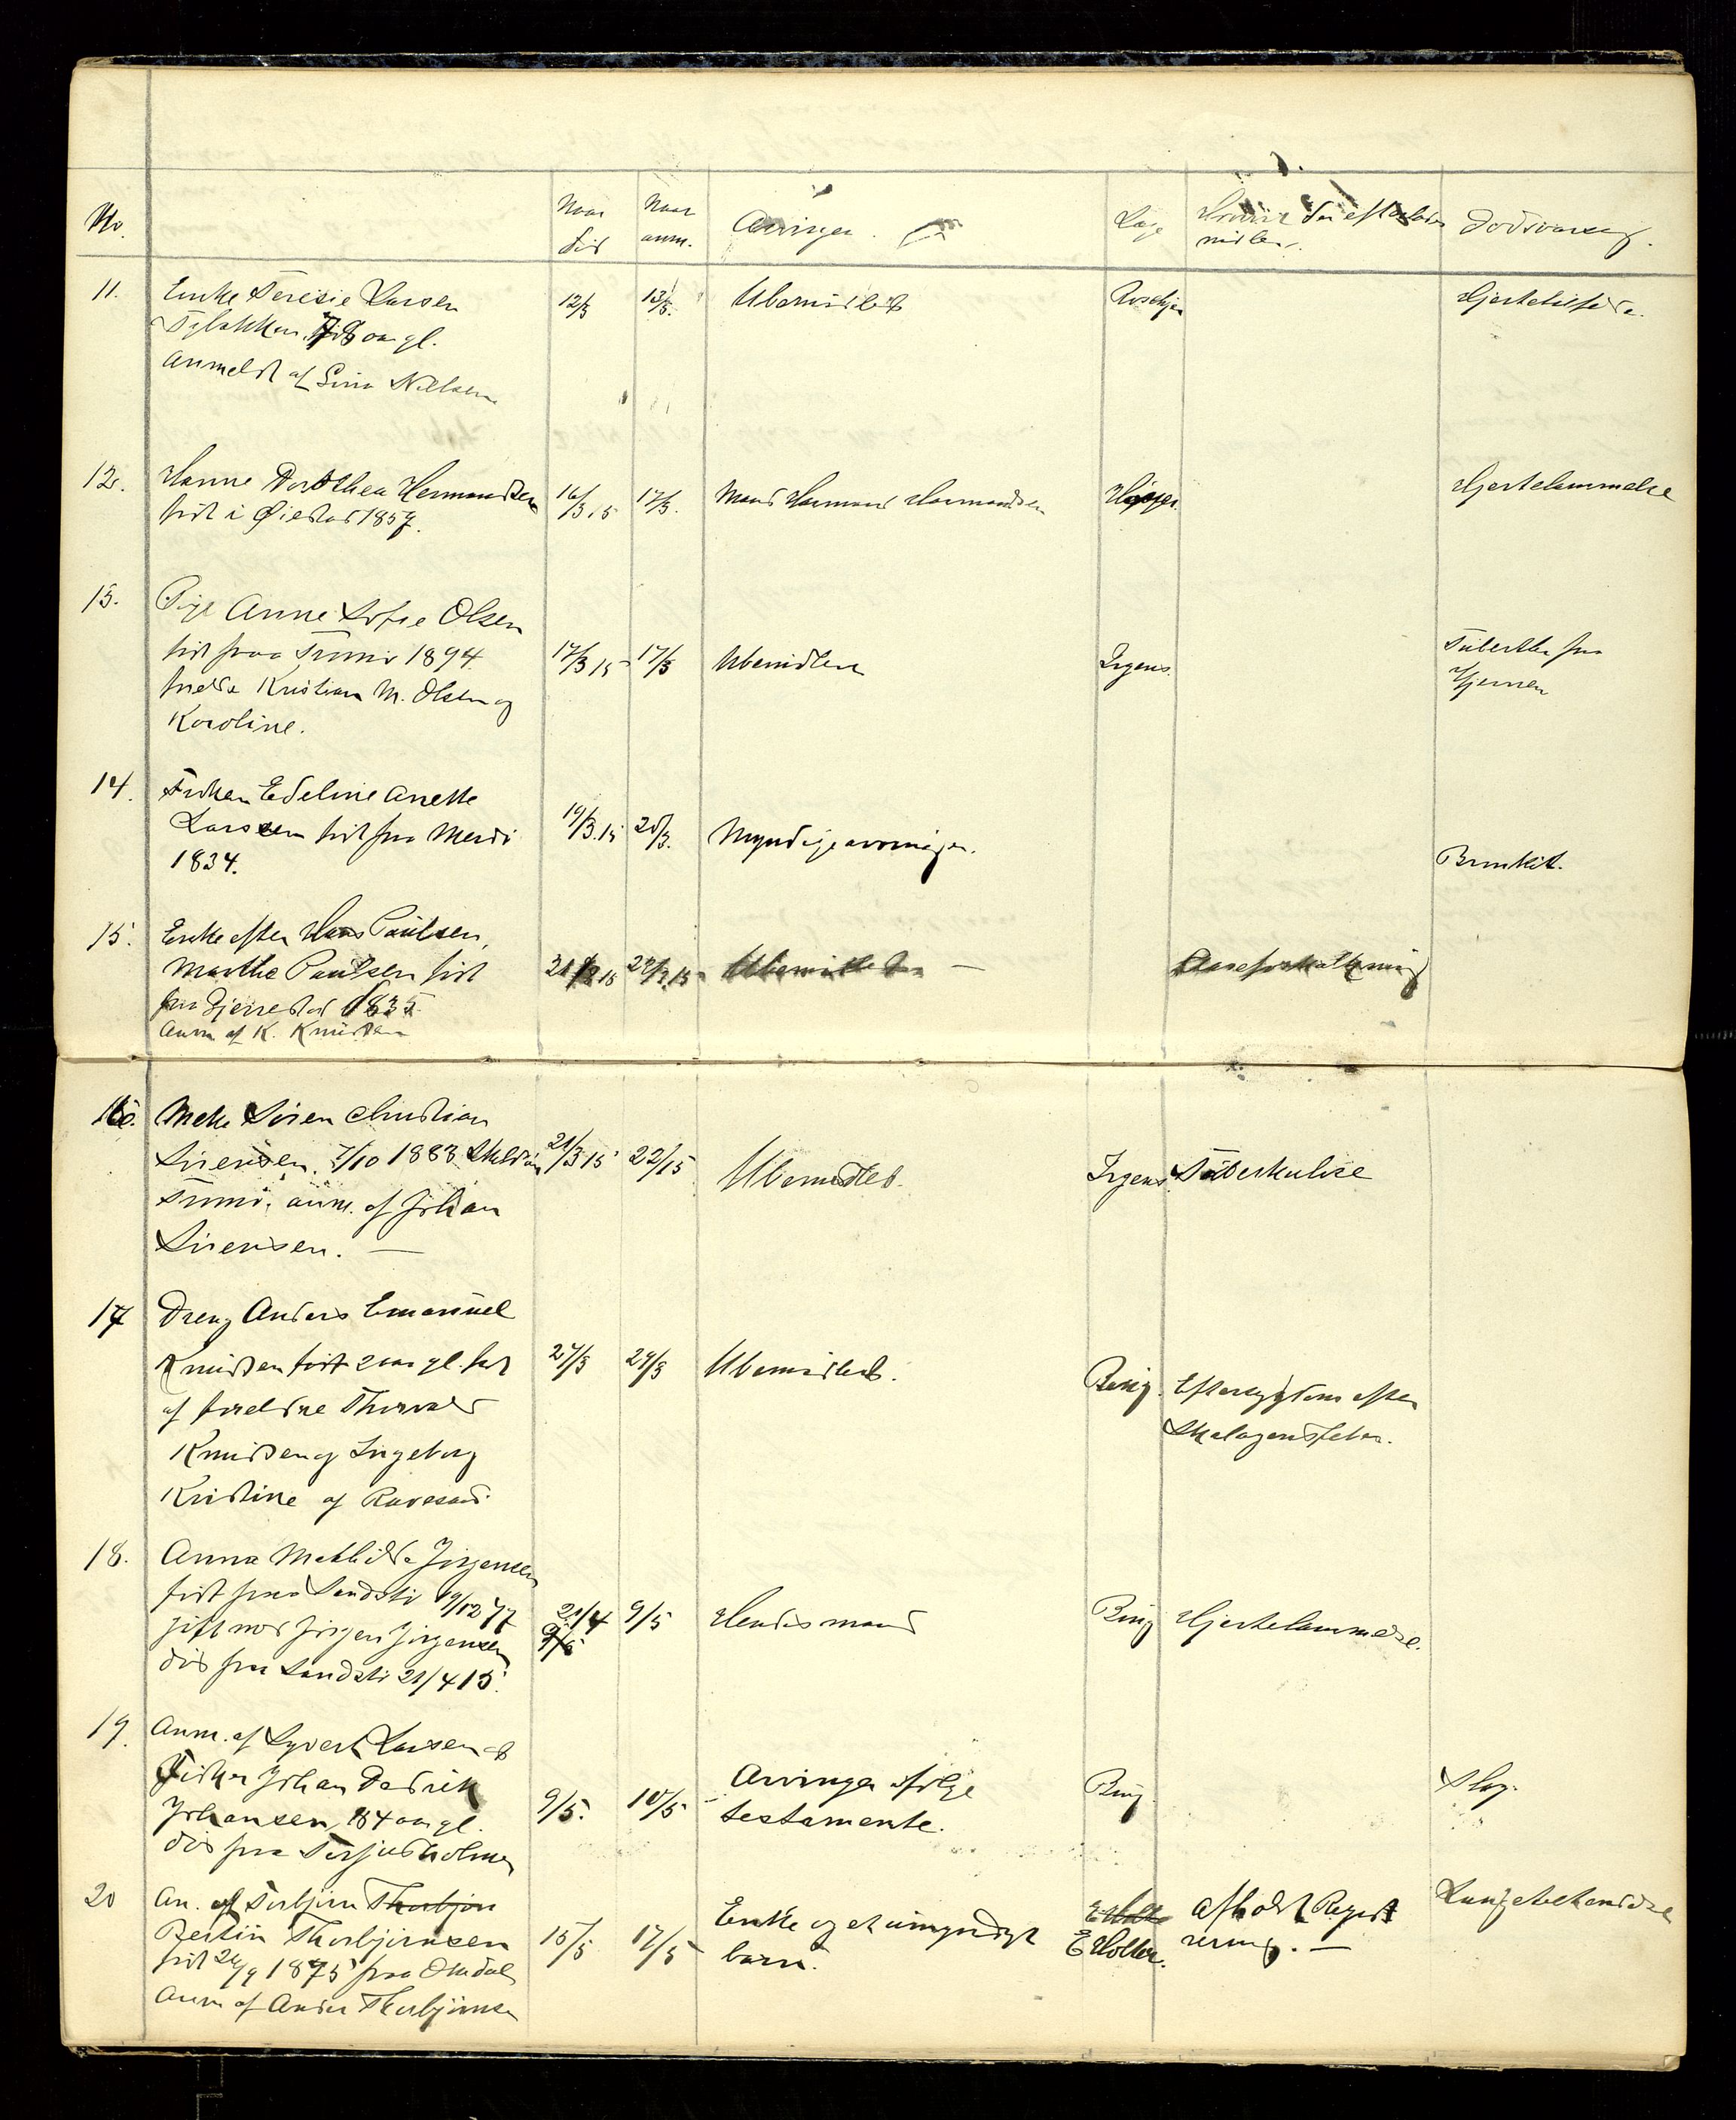 No.
Naar
død
Naar
anm.
Arvinger.
Læge
Hvorvidt der efterlades
midler.
Dødsaarsag.
11.
Enke Teresie Larsen
78 aar gl.
Anmeldt af Nielsen
12/3
13/3.
Ubemidlet
Hjertelidelse.
12.
Hanne Dorthea Hermandsen
født i Øiestad 1857.
16/3 15
17/3.
Mand Hermand Hermandsen
Høyer.
Hjertelammelse
13.
Pige Anne Sofie Olsen
født paa Tromø 1894
foreldre Kristian M. Olsen og
Karoline.
17/3 15
17/3
Ubemidlet
Irgens.
Tuberkler paa
Hjernen
14.
Frøken Edeline Anette
Larssen født paa Merdø
1834.
19/3.15
20/3.
Myndige arvinger.
Bronkit.
15.
Enke efter Hans Paulsen,
Marthe Paulsen født
paa Gjerrestad 1835
Anm af K. Knudsen
21/3 15
22/3.15
Ubemidlet —
Aareforkalkning
16.
Søren Christian
Sørensen. 7/10 1888
Tromø. anm. af Johan
Sørensen. —
21/3 15
22/15
Ubemidlet.
Irgens.
Tuberkulose
17
Dreng Anders Emanuel
Knudsen født 2 aar gl. søn
af foreldre Thorvald
Knudsen og Ingeborg
Kristine af Revesand.
27/3
29/3
Ubemidlet.
Bing.
Eftersygdom efter
Skalagensfeber.
18.
Anna Mathilde Jørgensen
født paa Sandsti 19/12 77
gift med Jørgen Jørgensen
død paa Sandsti 21/4 15.
21/4
9/5
9/5
Hendes mand
Bing
Hjertelammelse.
19.
Anm. af Syvert Larsen at
Fisker Johan Dedrik
Johansen, 84 aar gl.
død paa Torjusholmen
9/5.
10/5
Arvinger ifølge
testamente.
Bing.
Slag.
20
An. af Torbjørn Thorbjørn
Thorbjørnsen
født 24/9 1875 paa Omdal
Anm af Anders Thorbjørnsen
15/5
17/5
Enke og et umyndigt
barn.
E Holte
E Holter.
Afholdt Regist
rering. —
Lungebetændelse